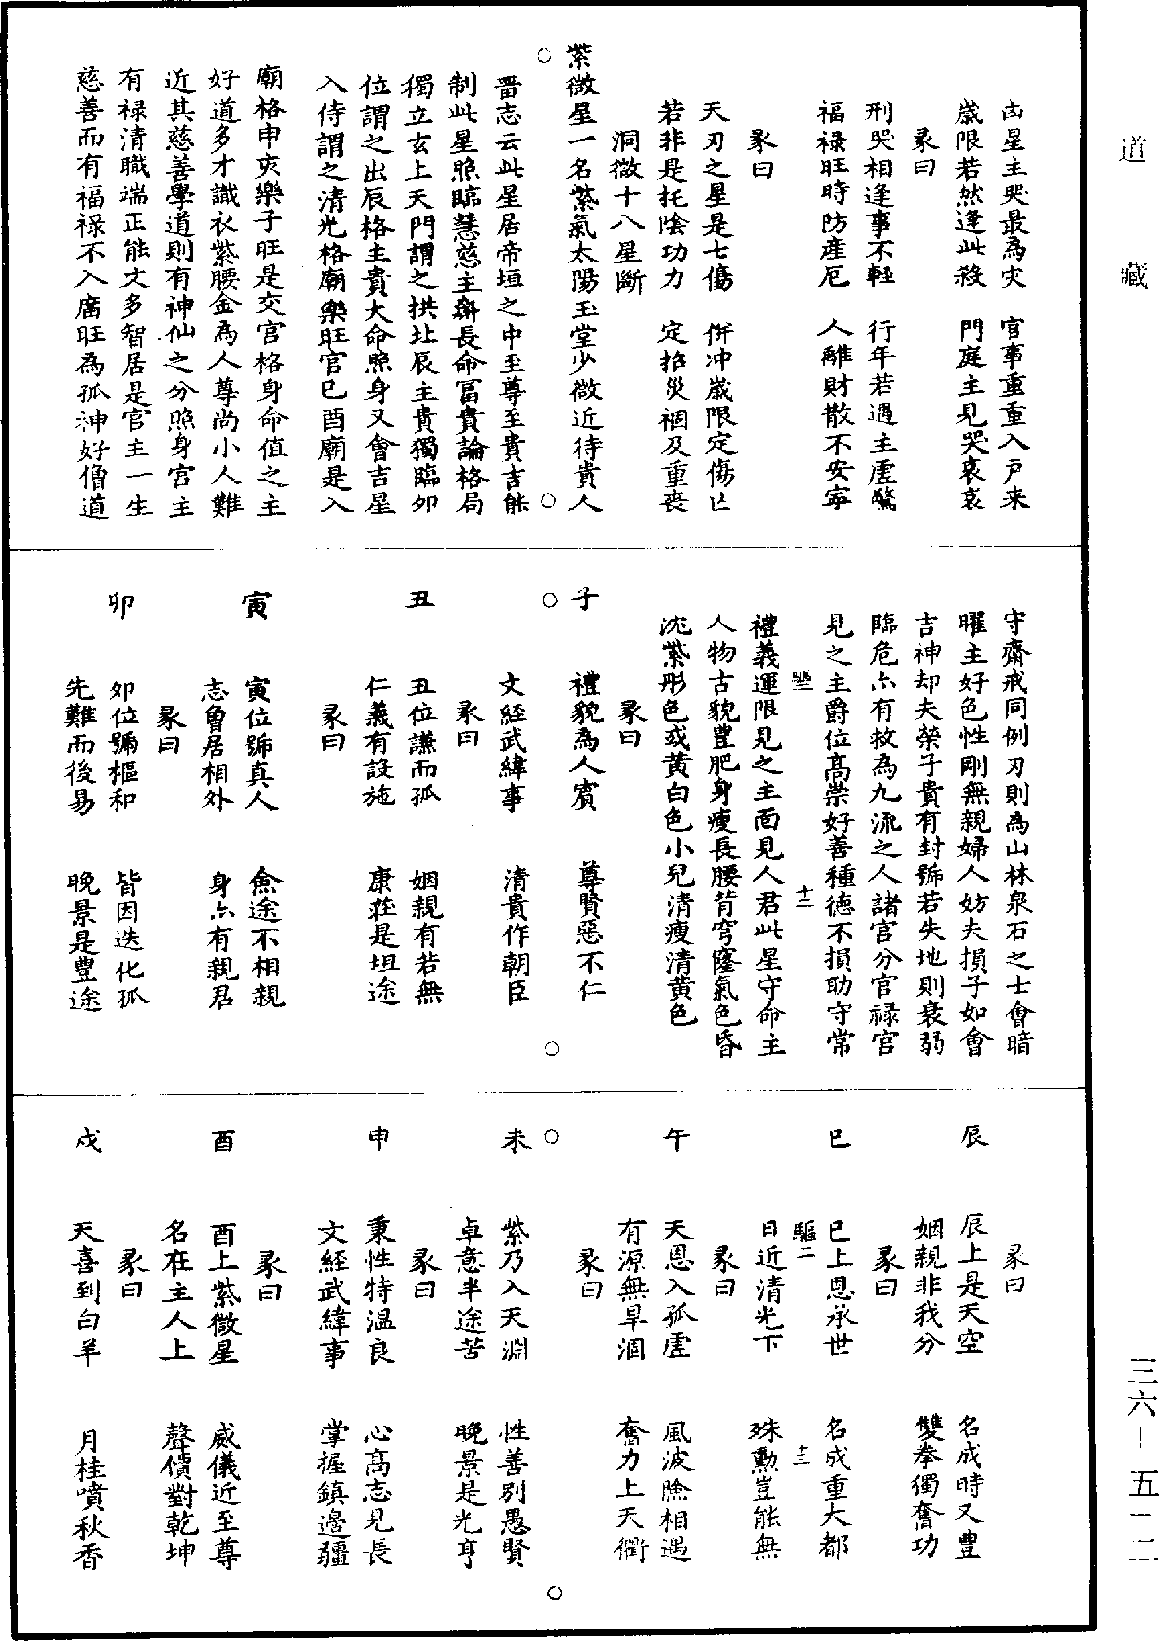 道藏
凶星主哭最為灾　官事重重入戸来
歲限若然逢此殺　門庭主見哭哀哀
彖曰
刑哭相逢事不輕　行年若遇主虛驚
福禄旺時防產厄　人離財散不安寧
彖曰
天刃之星是七傷　併冲歲限定傷亡
若非是托陰功力　定招災禍及重喪
洞微十八星斷
紫微星一名紫氣太陽玉堂少微近待貴人
晋志云此星居帝垣之中至尊至貴吉能
制此星照臨慧慈主壽長命冨貴論格局
獨立玄上天門謂之拱北辰主貴獨臨卯
位謂之出辰格主貴大命照身又會吉星
入侍謂之清光格廟樂旺官巳酉廟是入
廟格申亥樂子旺是交宫格身命值之主
好道多才識衣紫腰金為人尊尚小人難
近其慈善學道則有神仙之分照身宫主
有禄清職端正能文多智居是官主一生
慈善而有福禄不入廣旺為孤神好僧道
守齋戒同例刃則為山林泉石之士會暗
曜主好色性剛無親婦人妨夫損子如會
吉神却夫榮子貴有封號若失地則衰弱
臨危亦有救為九流之人諸官分官禄宫
見之主爵位髙崇好善種德不損助守常
禮義運限見之主面見人君此星守命主
人物古貌豊肥身瘦長腰背穹窿氣色昏
沈紫彤色或黄白色小兒清瘦清黄色
彖曰
子　禮貌為人賔　尊賢惡不仁
文經武緯事　清貴作朝臣
彖曰
丑　丑位謙而孤　姻親有若無
仁義有設施　康莊是坦途
彖曰
寅　寅位號真人　僉途不相親
志魯居相外　身亦有親君
彖曰
卯　卯位號樞和　皆因迭化孤
先難而後易　晚景是豊途
彖曰
辰　辰上是天空　名成時又豊
姻親非我分　雙拳獨奮功
彖曰
巳　巳上恩承世　名成重大都
驅二　十三
日近清光下　殊勳豈能無
彖曰
午　天恩入孤虛　風波險相遇
有源無旱涸　奮力上天衢
彖曰
未　紫乃入天淵　性善别愚賢
卓意半途苦　晚景是光亨
彖曰
申　秉性特温良　心髙志見長
文經武緯事　掌握鎮邊疆
彖曰
酉　酉上紫微星　威儀近至尊
名在主人上　聲價對乾坤
彖曰
戌　天喜到白羊　月桂噴秋香
三六–五一二